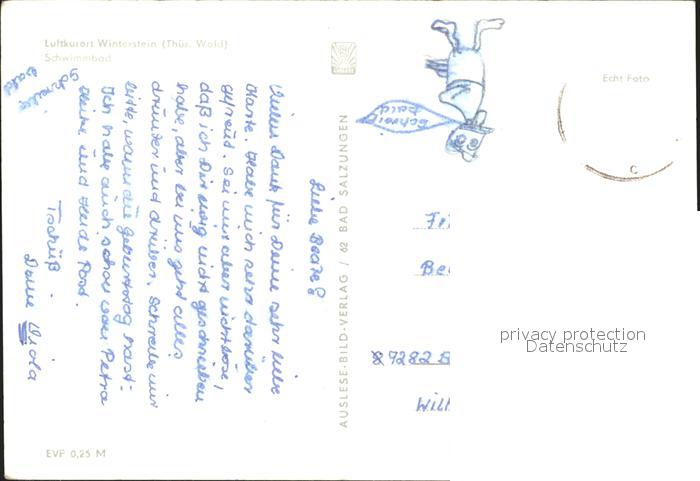 Luftkurort Winterstein (Thür. Wald)
Schwimmbad
Schreibe
bald
Liebe Beate!
Vielen Dank für Deine sehr liebe
Karte. Habe mich sehr darüber
gefreut. Sei mir aber nicht böse,
daß ich Dir ewig nicht geschrieben
habe, aber bei uns geht alles
drunter und drüber. Schreibe mir
bitte, wann du Geburtstag hast.
Ich habe auch schon von Petra
Heine und Heide Post.
Tschüß.
Deine Viola
EVP 0,25 M
AUSLESE-BILD-VERLAG / 62 BAD SALZUNGEN
Schreib
bald
Echt Foto
7282
privacy protection
Datenschutz